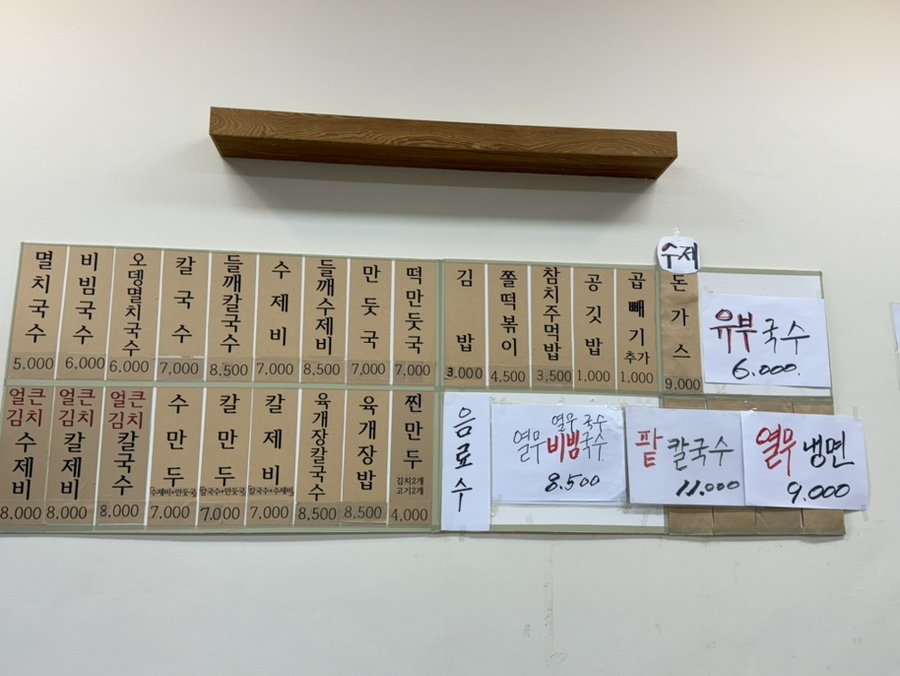 멸치국수 5,000
비빔국수 6,000
오뎅멸치국수 6,000
칼국수 7,000
들깨칼국수 8,500
수제비 7,000
들깨수제비 8,500
만둣국 7,000
떡만둣국 7,000
김밥 3,000
쫄떡볶이 4,500
참치주먹밥 3,500
공깃밥 1,000
곱빼기 추가 1,000
수제 돈가스 9,000
유부국수
6,000.
얼큰김치 수제비 8,000
얼큰김치 칼제비 8,000
얼큰김치 칼국수 8,000
수만두 수제비+만둣국 7,000
칼만두 칼국수+만둣국 7,000
칼제비 칼국수+수제비 7,000
육개장칼국수 8,500
육개장밥 8,500
찐만두 김치2개 고기2개 4,000
음료수
열무국수
열무비빔국수
8.500
팥칼국수
11.000
열무냉면
9.000